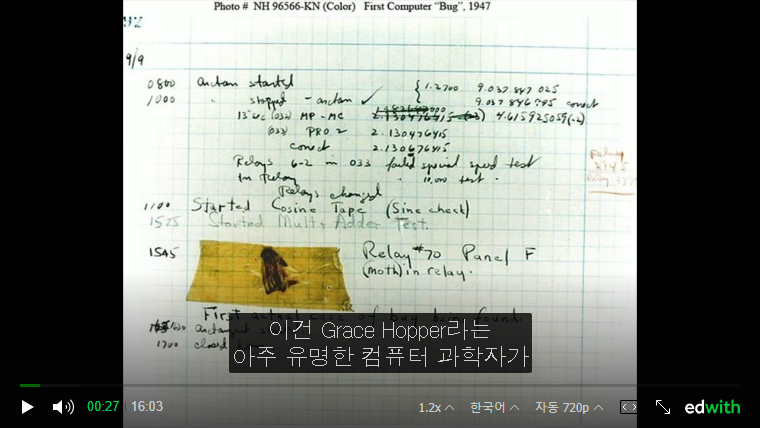 Photo # NH 96566-KN (Color) First Computer "Bug", 1947
92
9/9
0800 arctan started
1000 " stopped - arctan ✓
{ 1.2700 9.037 847 025
9.037 846 795 correct
13"uc (032) MP - MC 2.130476415 4.615925059(-2)
(033) PRO 2 2.130476415
correct 2.130676415
Relays 6-2 in 033 failed special speed test
In Relay " 10.000 test .
Relays changed
Relay
1100 Started Cosine Tape (Sine check)
1525 Started Mult + Adder Test.
1545 Relay #70 Panel F
(moth) in relay.
First actual case of bug being found.
1700 closed
이건 Grace Hopper라는
아주 유명한 컴퓨터 과학자가
00:27 16:03 1.2x 한국어 자동 720p edwith